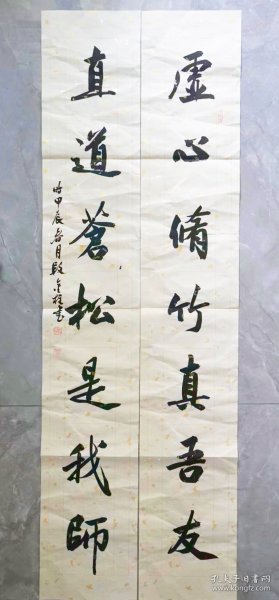 虚心脩竹真吾友
直道蒼松是我師
時甲辰春月段金柱書
孔夫子旧书网